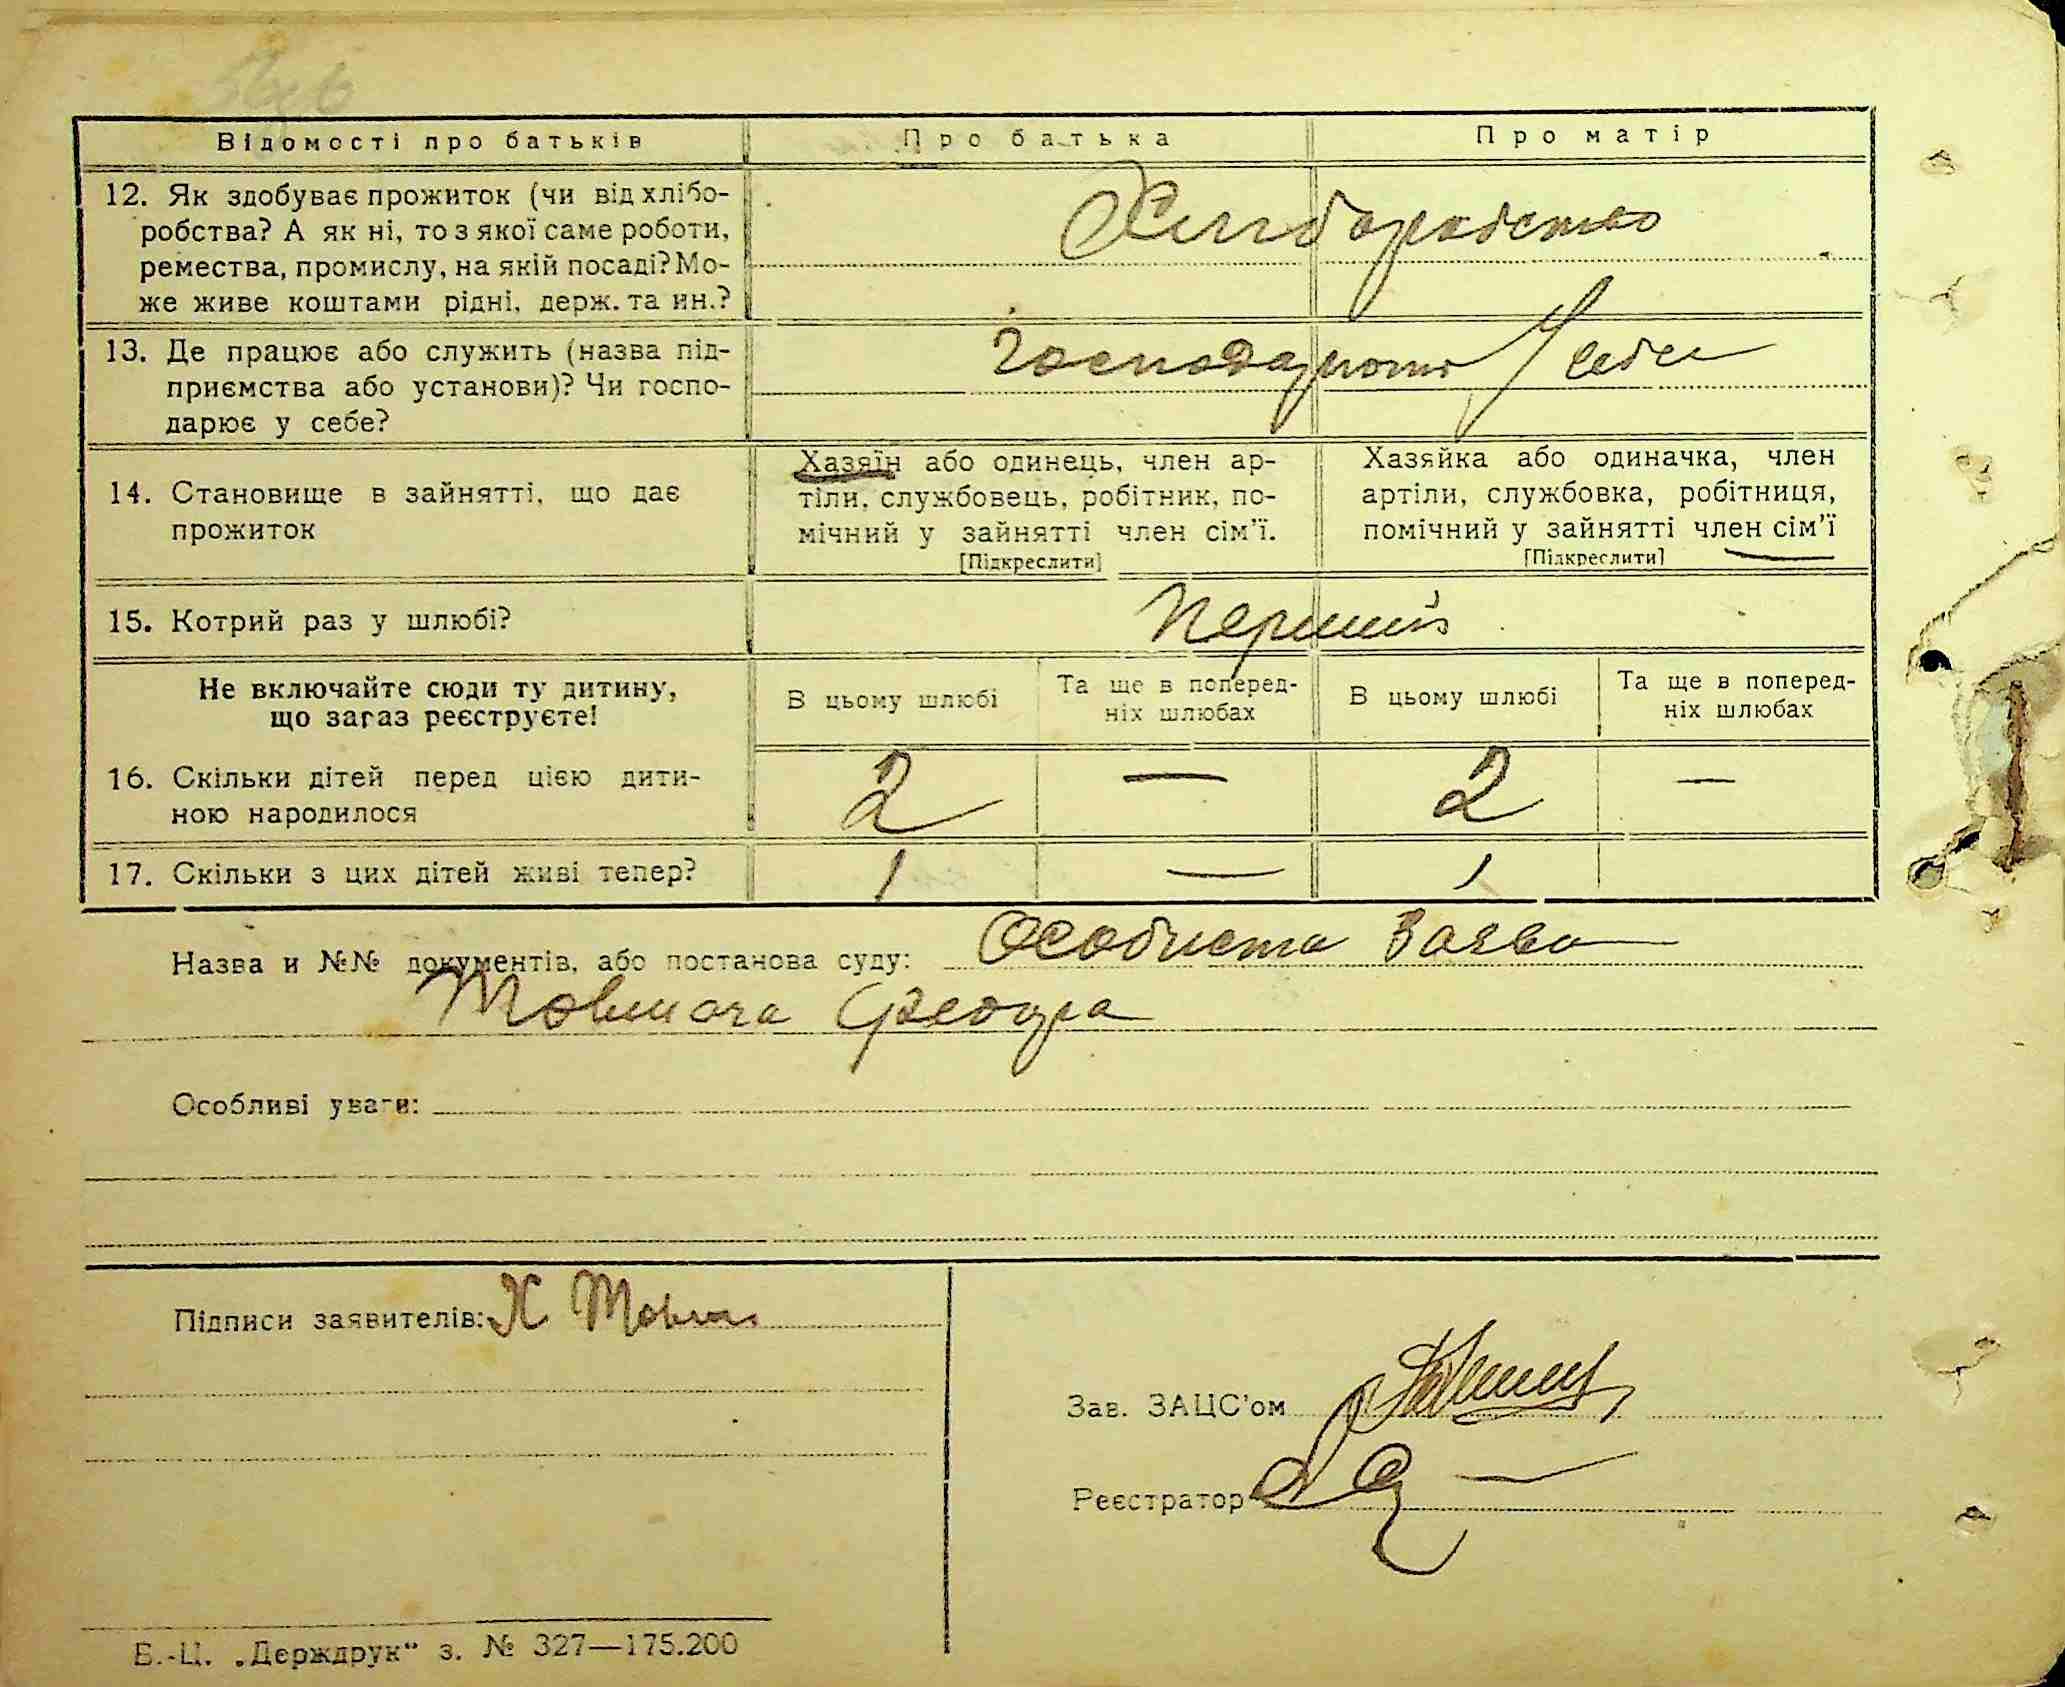 Відомості про батьків Про батька Про матір
12. Як здобуває прожиток (чи від хлібо-
робства? А як ні, то з якої саме роботи,
ремества, промислу, на якій посаді? Мо-
же живе коштами рідні, держ. та ин.?
Хліборобство
13. Де працює або служить (назва під-
приємства або установи)? Чи госпо-
дарює у себе?
Господарстві У себе
14. Становище в зайнятті, що дає
прожиток
Хазяїн або одинець, член ар-
тіли, службовець, робітник, по-
мічний у зайнятті член сім'ї.
[Підкреслити]
Хазяйка або одиначка, член
артіли, службовка, робітниця,
помічний у зайнятті член сім'ї
[Підкреслити]
15. Котрий раз у шлюбі? Перший
Не включайте сюди ту дитину,
що зараз реєструєте!
В цьому шлюбі
Та ще в поперед-
ніх шлюбах
В цьому шлюбі
Та ще в поперед-
ніх шлюбах
16. Скільки дітей перед цією дити-
ною народилося
2 — 2 —
17. Скільки з цих дітей живі тепер? 1 — 1
Назва и №№ документів, або постанова суду: Особиста Заява
Товмача Федора
Особливі уваги:
Підписи заявителів: Х Товма
Зав. ЗАЦС'ом
Реєстратор
Б.-Ц. „Держдрук“ з. № 327—175.200